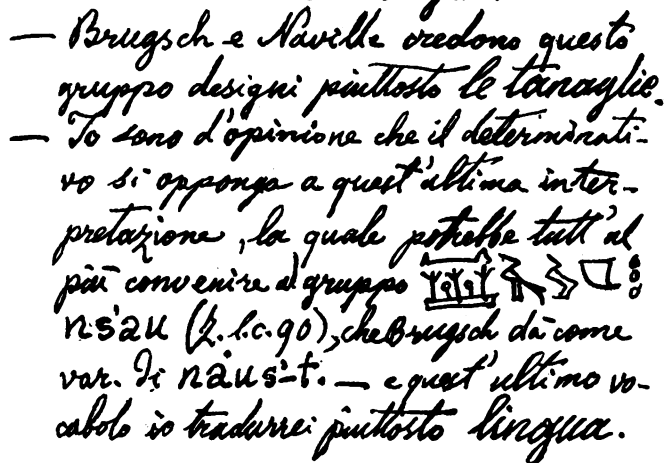 — Brugsch e Naville credono questo
gruppo designi piuttosto le tanaglie.
— Io sono d'opinione che il determinati-
vo si opponga a quest'ultima inter-
pretazione, la quale potrebbe tutt'al
più convenire al gruppo
(l.c. 90), che Brugsch dà come
var. di — e quest'ultimo vo-
cabolo io tradurrei piuttosto lingua.